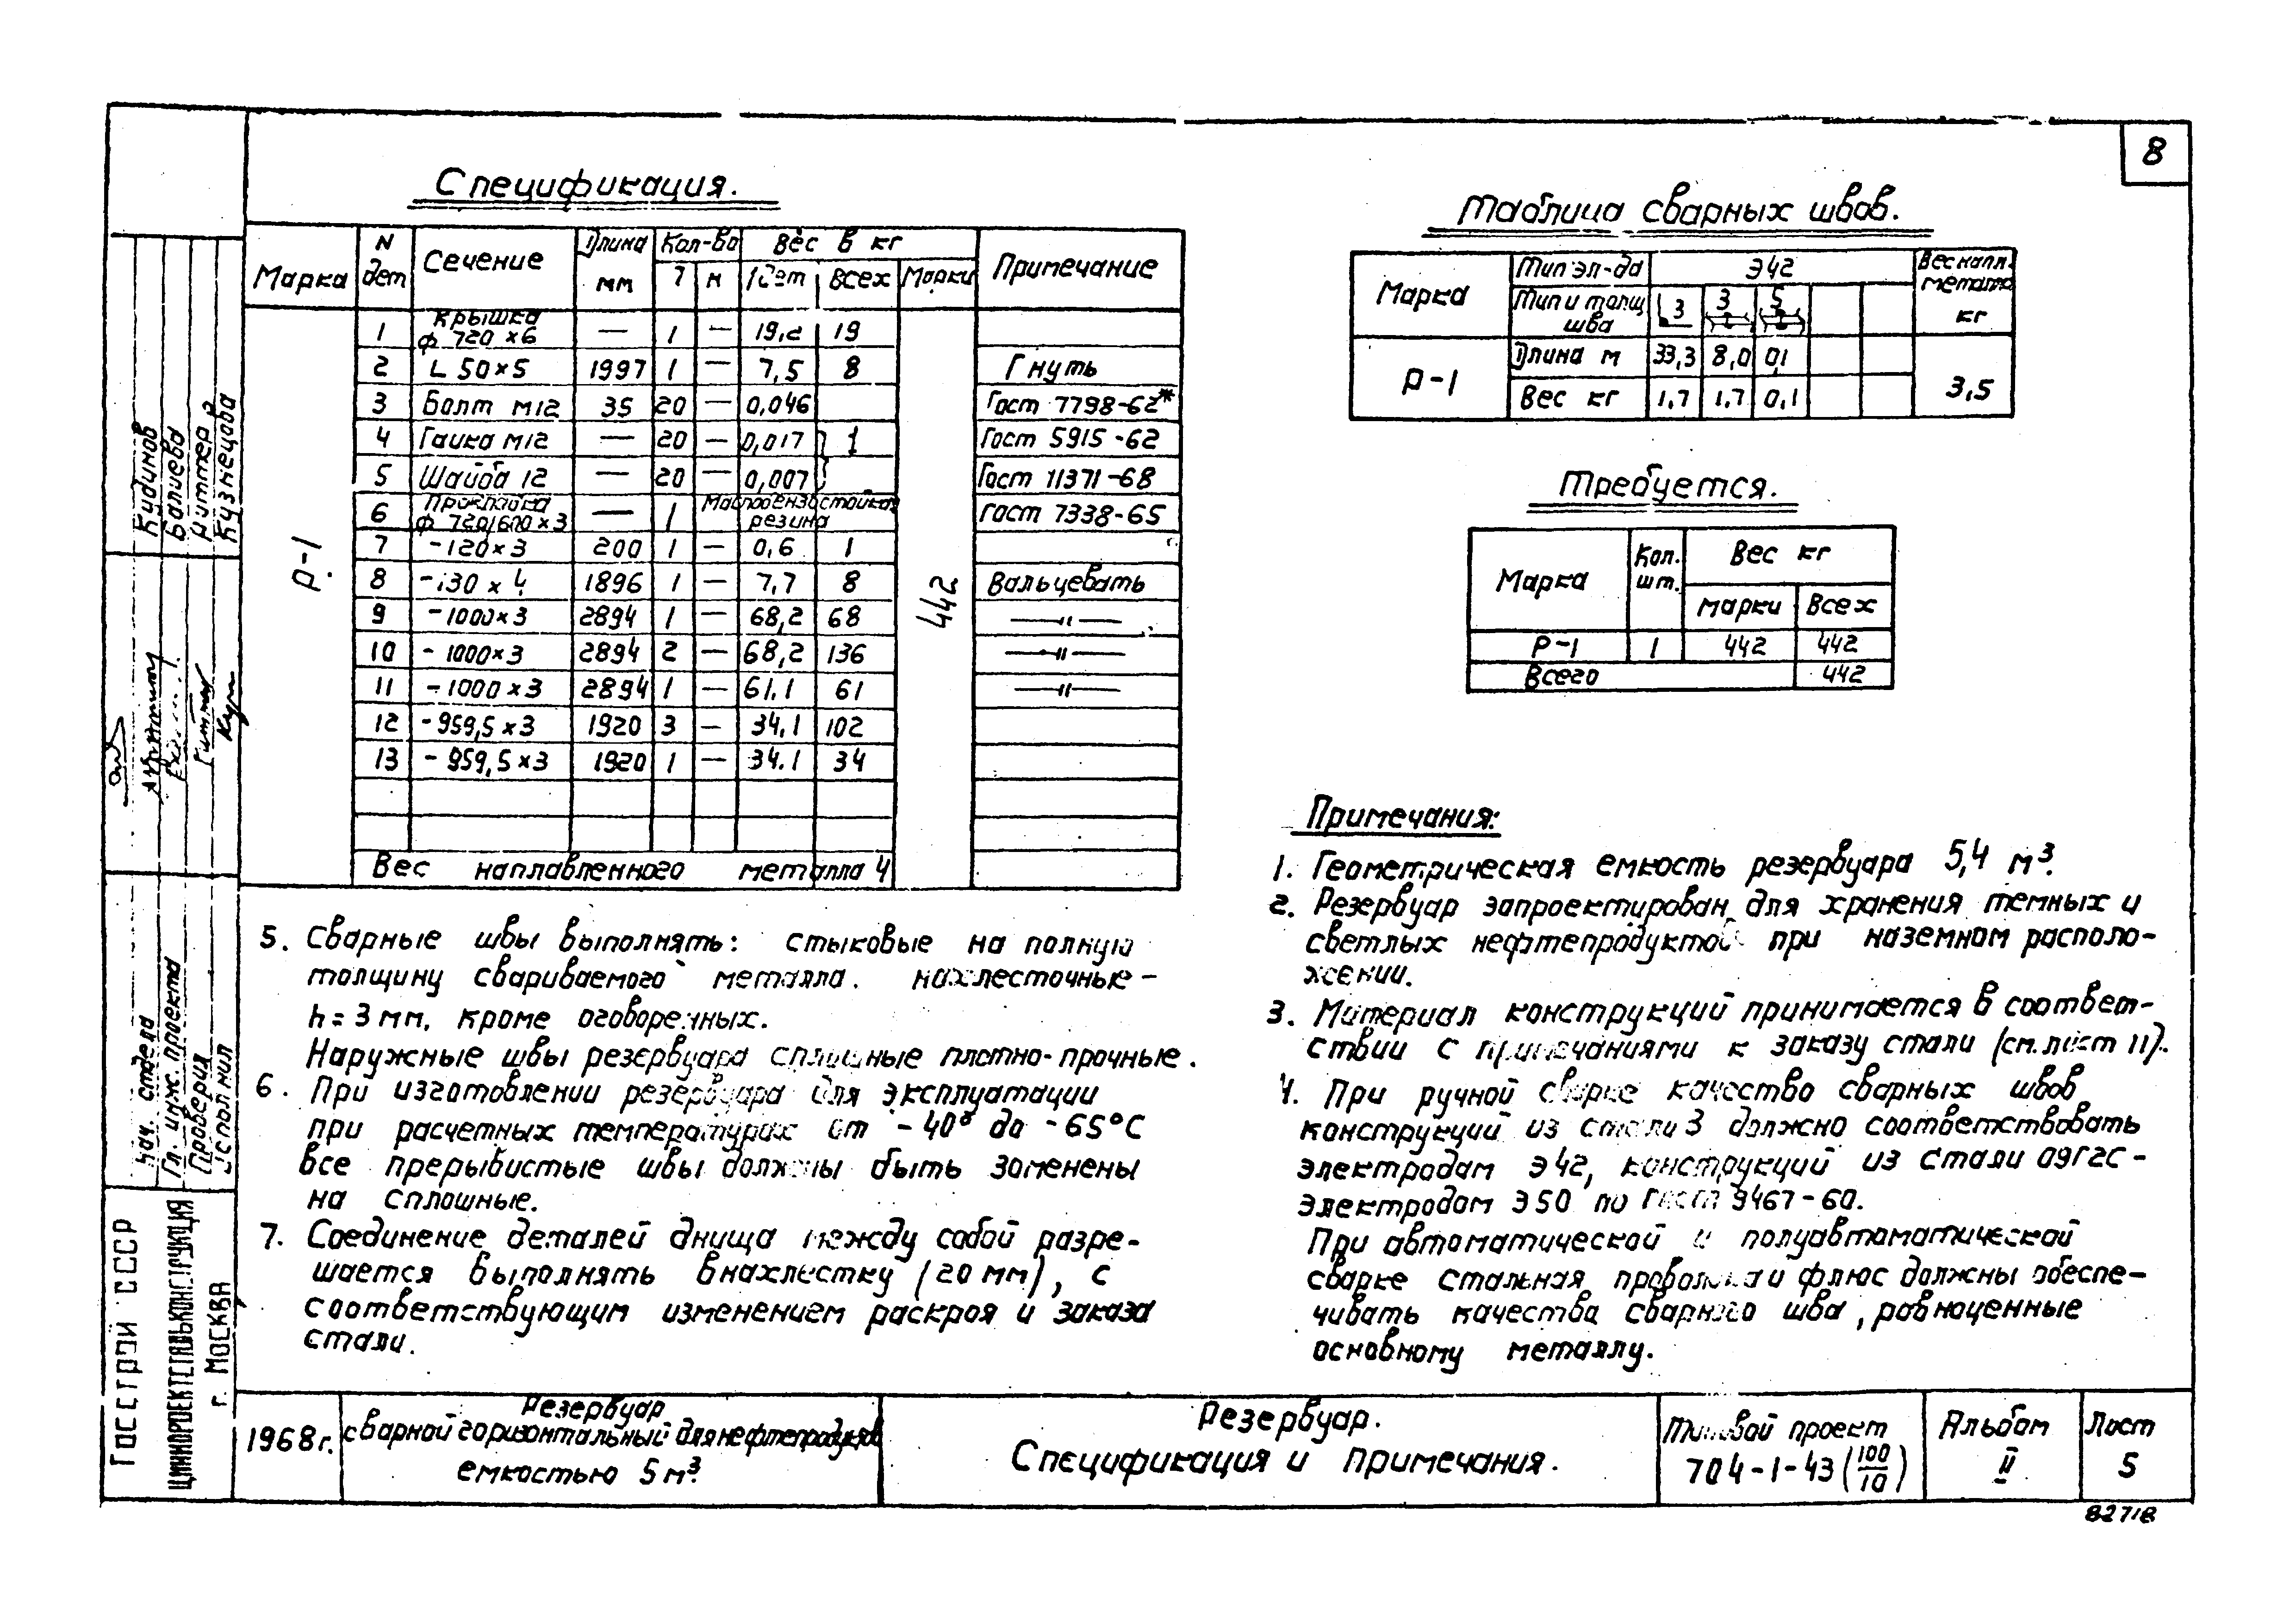 8
Спецификация.
Марка | N дет | Сечение | Длина мм | Кол-во Т Н | Вес в кг 1 дет Всех Марки | Примечание
Р-1 | 442
1 | Крышка ф 720×6 | — | 1 | — | 19,2 | 19
2 | L 50×5 | 1997 | 1 | — | 7,5 | 8 | Гнуть
3 | Болт М12 | 35 | 20 | — | 0,046 | Гост 7798-62*
4 | Гайка М12 | — | 20 | — | 0,017 | 1 | Гост 5915-62
5 | Шайба 12 | — | 20 | — | 0,007 | Гост 11371-68
6 | Прокладка ф 720/600×3 | — | 1 | Маслобензостойкая резина | Гост 7338-65
7 | -120×3 | 200 | 1 | — | 0,6 | 1
8 | -130×4 | 1896 | 1 | — | 7,7 | 8 | Вальцевать
9 | -1000×3 | 2894 | 1 | — | 68,2 | 68 | —"—
10 | -1000×3 | 2894 | 2 | — | 68,2 | 136 | —"—
11 | -1000×3 | 2894 | 1 | — | 61.1 | 61 | —"—
12 | -959,5×3 | 1920 | 3 | — | 34,1 | 102
13 | -959,5×3 | 1920 | 1 | — | 34.1 | 34
Вес наплавленного металла 4
5. Сварные швы выполнять: стыковые на полную
толщину свариваемого металла. нахлесточные –
h = 3 мм. кроме оговоренных.
Наружные швы резервуара сплошные плотно-прочные.
6. При изготовлении резервуара для эксплуатации
при расчетных температурах от -40° до -65°С
все прерывистые швы должны быть заменены
на сплошные.
7. Соединение деталей днища между собой разре-
шается выполнять внахлестку (20 мм), с
соответствующим изменением раскроя и заказа
стали.
Таблица сварных швов.
Марка | Тип эл-да | Э42 | Вес напл. металла кг
Тип и толщ шва | 3 | 3 | 5
Р-1 | Длина м | 33,3 | 8,0 | 0,1 | 3,5
Вес кг | 1,7 | 1,7 | 0,1
Требуется.
Марка | Кол. шт. | Вес кг
марки | Всех
Р-1 | 1 | 442 | 442
Всего | 442
Примечания:
1. Геометрическая емкость резервуара 5,4 м³.
2. Резервуар запроектирован для хранения темных и
светлых нефтепродуктов при наземном располо-
жении.
3. Материал конструкций принимается в соответ-
ствии с примечаниями к заказу стали (см. лист 11).
4. При ручной сварке качество сварных швов
конструкций из стали 3 должно соответствовать
электродам Э42, конструкций из стали 09Г2С –
электродам Э50 по Гост 9467-60.
При автоматической и полуавтоматической
сварке стальная проволока и флюс должны обеспе-
чивать качества сварного шва, равноценные
основному металлу.
Кудинов
Валиева
Кузнецова
Нач. отдела
Гл. инж. проекта
Проверил
Исполнил
Госстрой СССР
ЦНИИПРОЕКТСТАЛЬКОНСТРУКЦИЯ
г. МОСКВА
1968г.
Резервуар
сварной горизонтальный для нефтепродуктов
емкостью 5 м³.
Резервуар.
Спецификация и примечания.
Типовой проект
704-1-43 (100/10)
Альбом
II
Лист
5